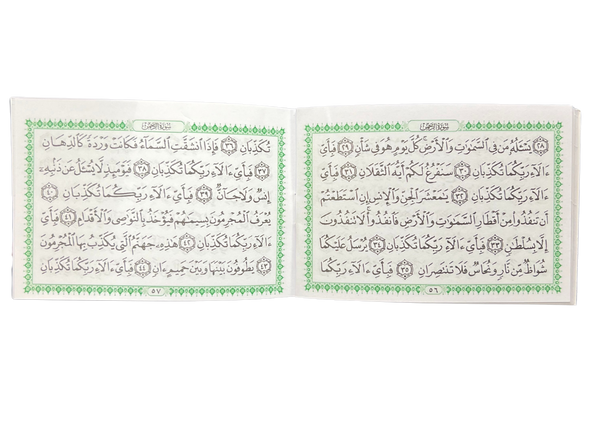 سورة الرحمن
٢٨ يَسْـَٔلُهُۥ مَن فِى ٱلسَّمَـٰوَٰتِ وَٱلْأَرْضِ كُلَّ يَوْمٍ هُوَ فِى شَأْنٍ ٢٩ فَبِأَىِّ
ءَالَآءِ رَبِّكُمَا تُكَذِّبَانِ ٣٠ سَنَفْرُغُ لَكُمْ أَيُّهَ ٱلثَّقَلَانِ ٣١ فَبِأَىِّ
ءَالَآءِ رَبِّكُمَا تُكَذِّبَانِ ٣٢ يَـٰمَعْشَرَ ٱلْجِنِّ وَٱلْإِنسِ إِنِ ٱسْتَطَعْتُمْ
أَن تَنفُذُوا۟ مِنْ أَقْطَارِ ٱلسَّمَـٰوَٰتِ وَٱلْأَرْضِ فَٱنفُذُوا۟ لَا تَنفُذُونَ
إِلَّا بِسُلْطَـٰنٍ ٣٣ فَبِأَىِّ ءَالَآءِ رَبِّكُمَا تُكَذِّبَانِ ٣٤ يُرْسَلُ عَلَيْكُمَا
شُوَاظٌ مِّن نَّارٍ وَنُحَاسٌ فَلَا تَنتَصِرَانِ ٣٥ فَبِأَىِّ ءَالَآءِ رَبِّكُمَا
٥٦
سورة الرحمن
تُكَذِّبَانِ ٣٦ فَإِذَا ٱنشَقَّتِ ٱلسَّمَآءُ فَكَانَتْ وَرْدَةً كَٱلدِّهَانِ
٣٧ فَبِأَىِّ ءَالَآءِ رَبِّكُمَا تُكَذِّبَانِ ٣٨ فَيَوْمَئِذٍ لَّا يُسْـَٔلُ عَن ذَنۢبِهِۦٓ
إِنسٌ وَلَا جَآنٌّ ٣٩ فَبِأَىِّ ءَالَآءِ رَبِّكُمَا تُكَذِّبَانِ ٤٠
يُعْرَفُ ٱلْمُجْرِمُونَ بِسِيمَـٰهُمْ فَيُؤْخَذُ بِٱلنَّوَٰصِى وَٱلْأَقْدَامِ ٤١ فَبِأَىِّ
ءَالَآءِ رَبِّكُمَا تُكَذِّبَانِ ٤٢ هَـٰذِهِۦ جَهَنَّمُ ٱلَّتِى يُكَذِّبُ بِهَا ٱلْمُجْرِمُونَ
٤٣ يَطُوفُونَ بَيْنَهَا وَبَيْنَ حَمِيمٍ ءَانٍ ٤٤ فَبِأَىِّ ءَالَآءِ رَبِّكُمَا تُكَذِّبَانِ
٥٧